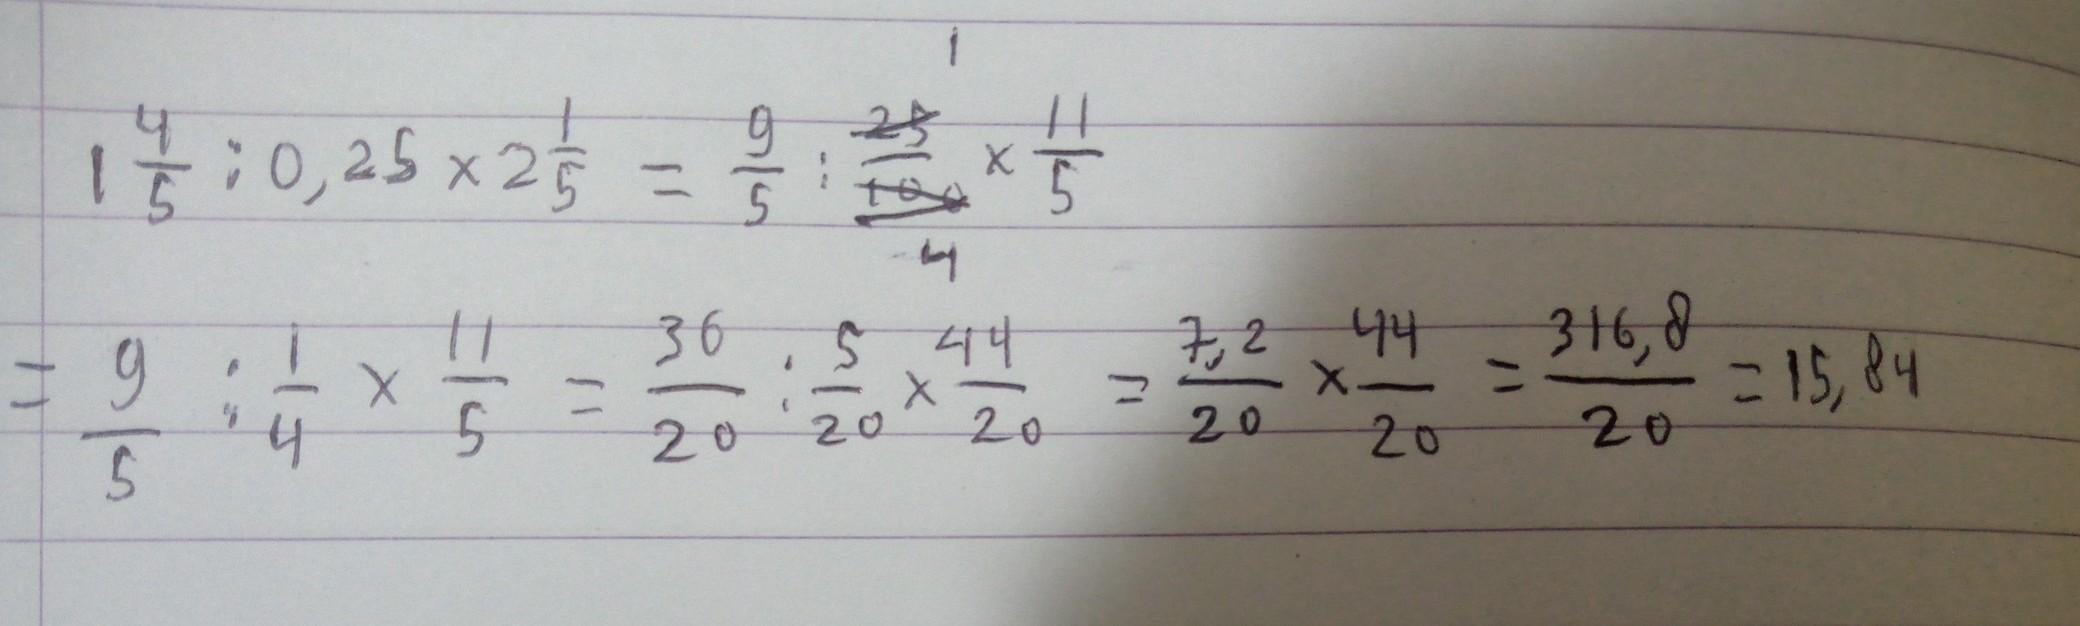 1 4/5 : 0,25 × 2 1/5 = 9/5 : 25/100 × 11/5
1
4
= 9/5 : 1/4 × 11/5 = 36/20 : 5/20 × 44/20 = 7,2/20 × 44/20 = 316,8/20 = 15,84